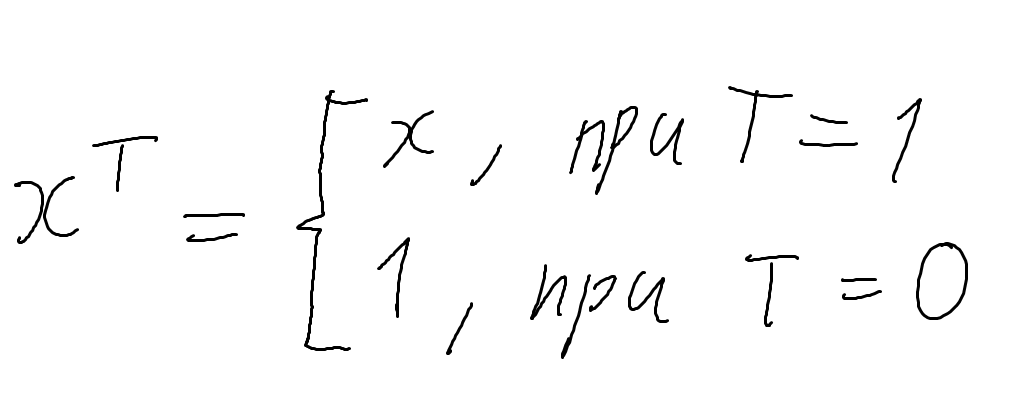 x^T = { x, при T = 1
1, при T = 0